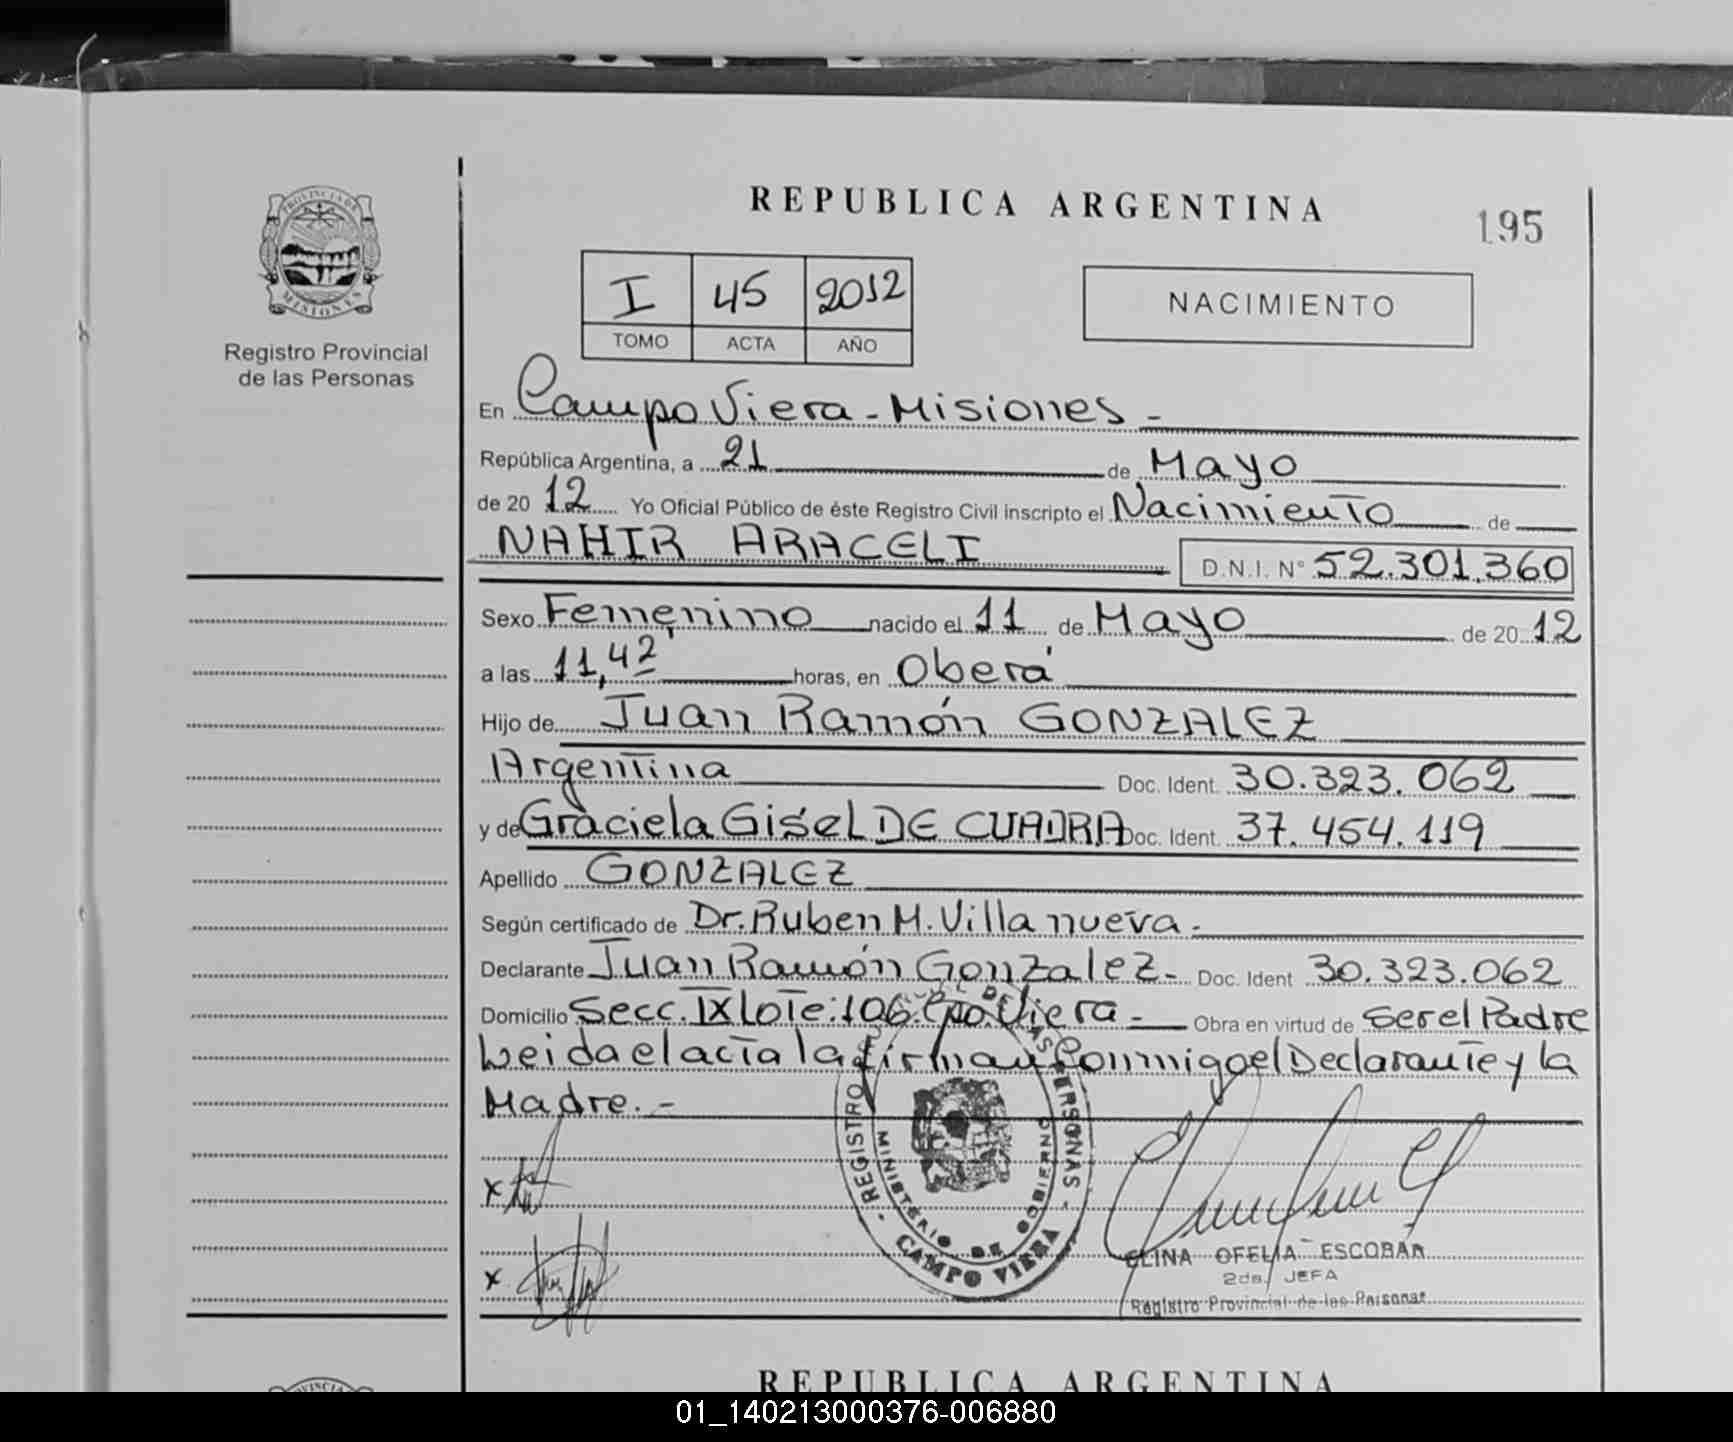 REPUBLICA ARGENTINA
195
PROVINCIA DE
MISIONES
Registro Provincial
de las Personas
I 45 2012
TOMO ACTA AÑO
NACIMIENTO
En Campo Viera - Misiones -
República Argentina, a 21 de Mayo
de 2012 Yo Oficial Público de éste Registro Civil inscripto el Nacimiento de
NAHIR ARACELI D.N.I. N° 52.301.360
Sexo Femenino nacido el 11 de Mayo de 2012
a las 11,42 horas, en Oberá
Hijo de Juan Ramón GONZALEZ
Argentina Doc. Ident. 30.323.062
y de Graciela Gisel DE CUADRA Doc. Ident. 37.454.119
Apellido GONZALEZ
Según certificado de Dr. Ruben M. Villanueva.-
Declarante Juan Ramón Gonzalez- Doc. Ident 30.323.062
Domicilio Secc. IX Lote: 106. Cpo. Viera - Obra en virtud de ser el Padre
Leida el acta la firman Conmigo el Declarante y la
Madre.-
REGISTRO DE LAS PERSONAS - CAMPO VIERA -
MINISTERIO DE GOBIERNO
x
x
ELINA OFELIA ESCOBAR
2da. JEFA
Registro Provincial de las Personas
REPUBLICA ARGENTINA
01_140213000376-006880